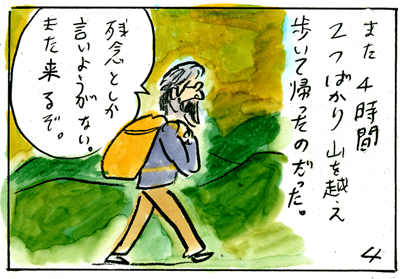 また4時間
2つばかり山を越え
歩いて帰ったのだった。
残念としか
言いようがない。
また来るぞ。
4